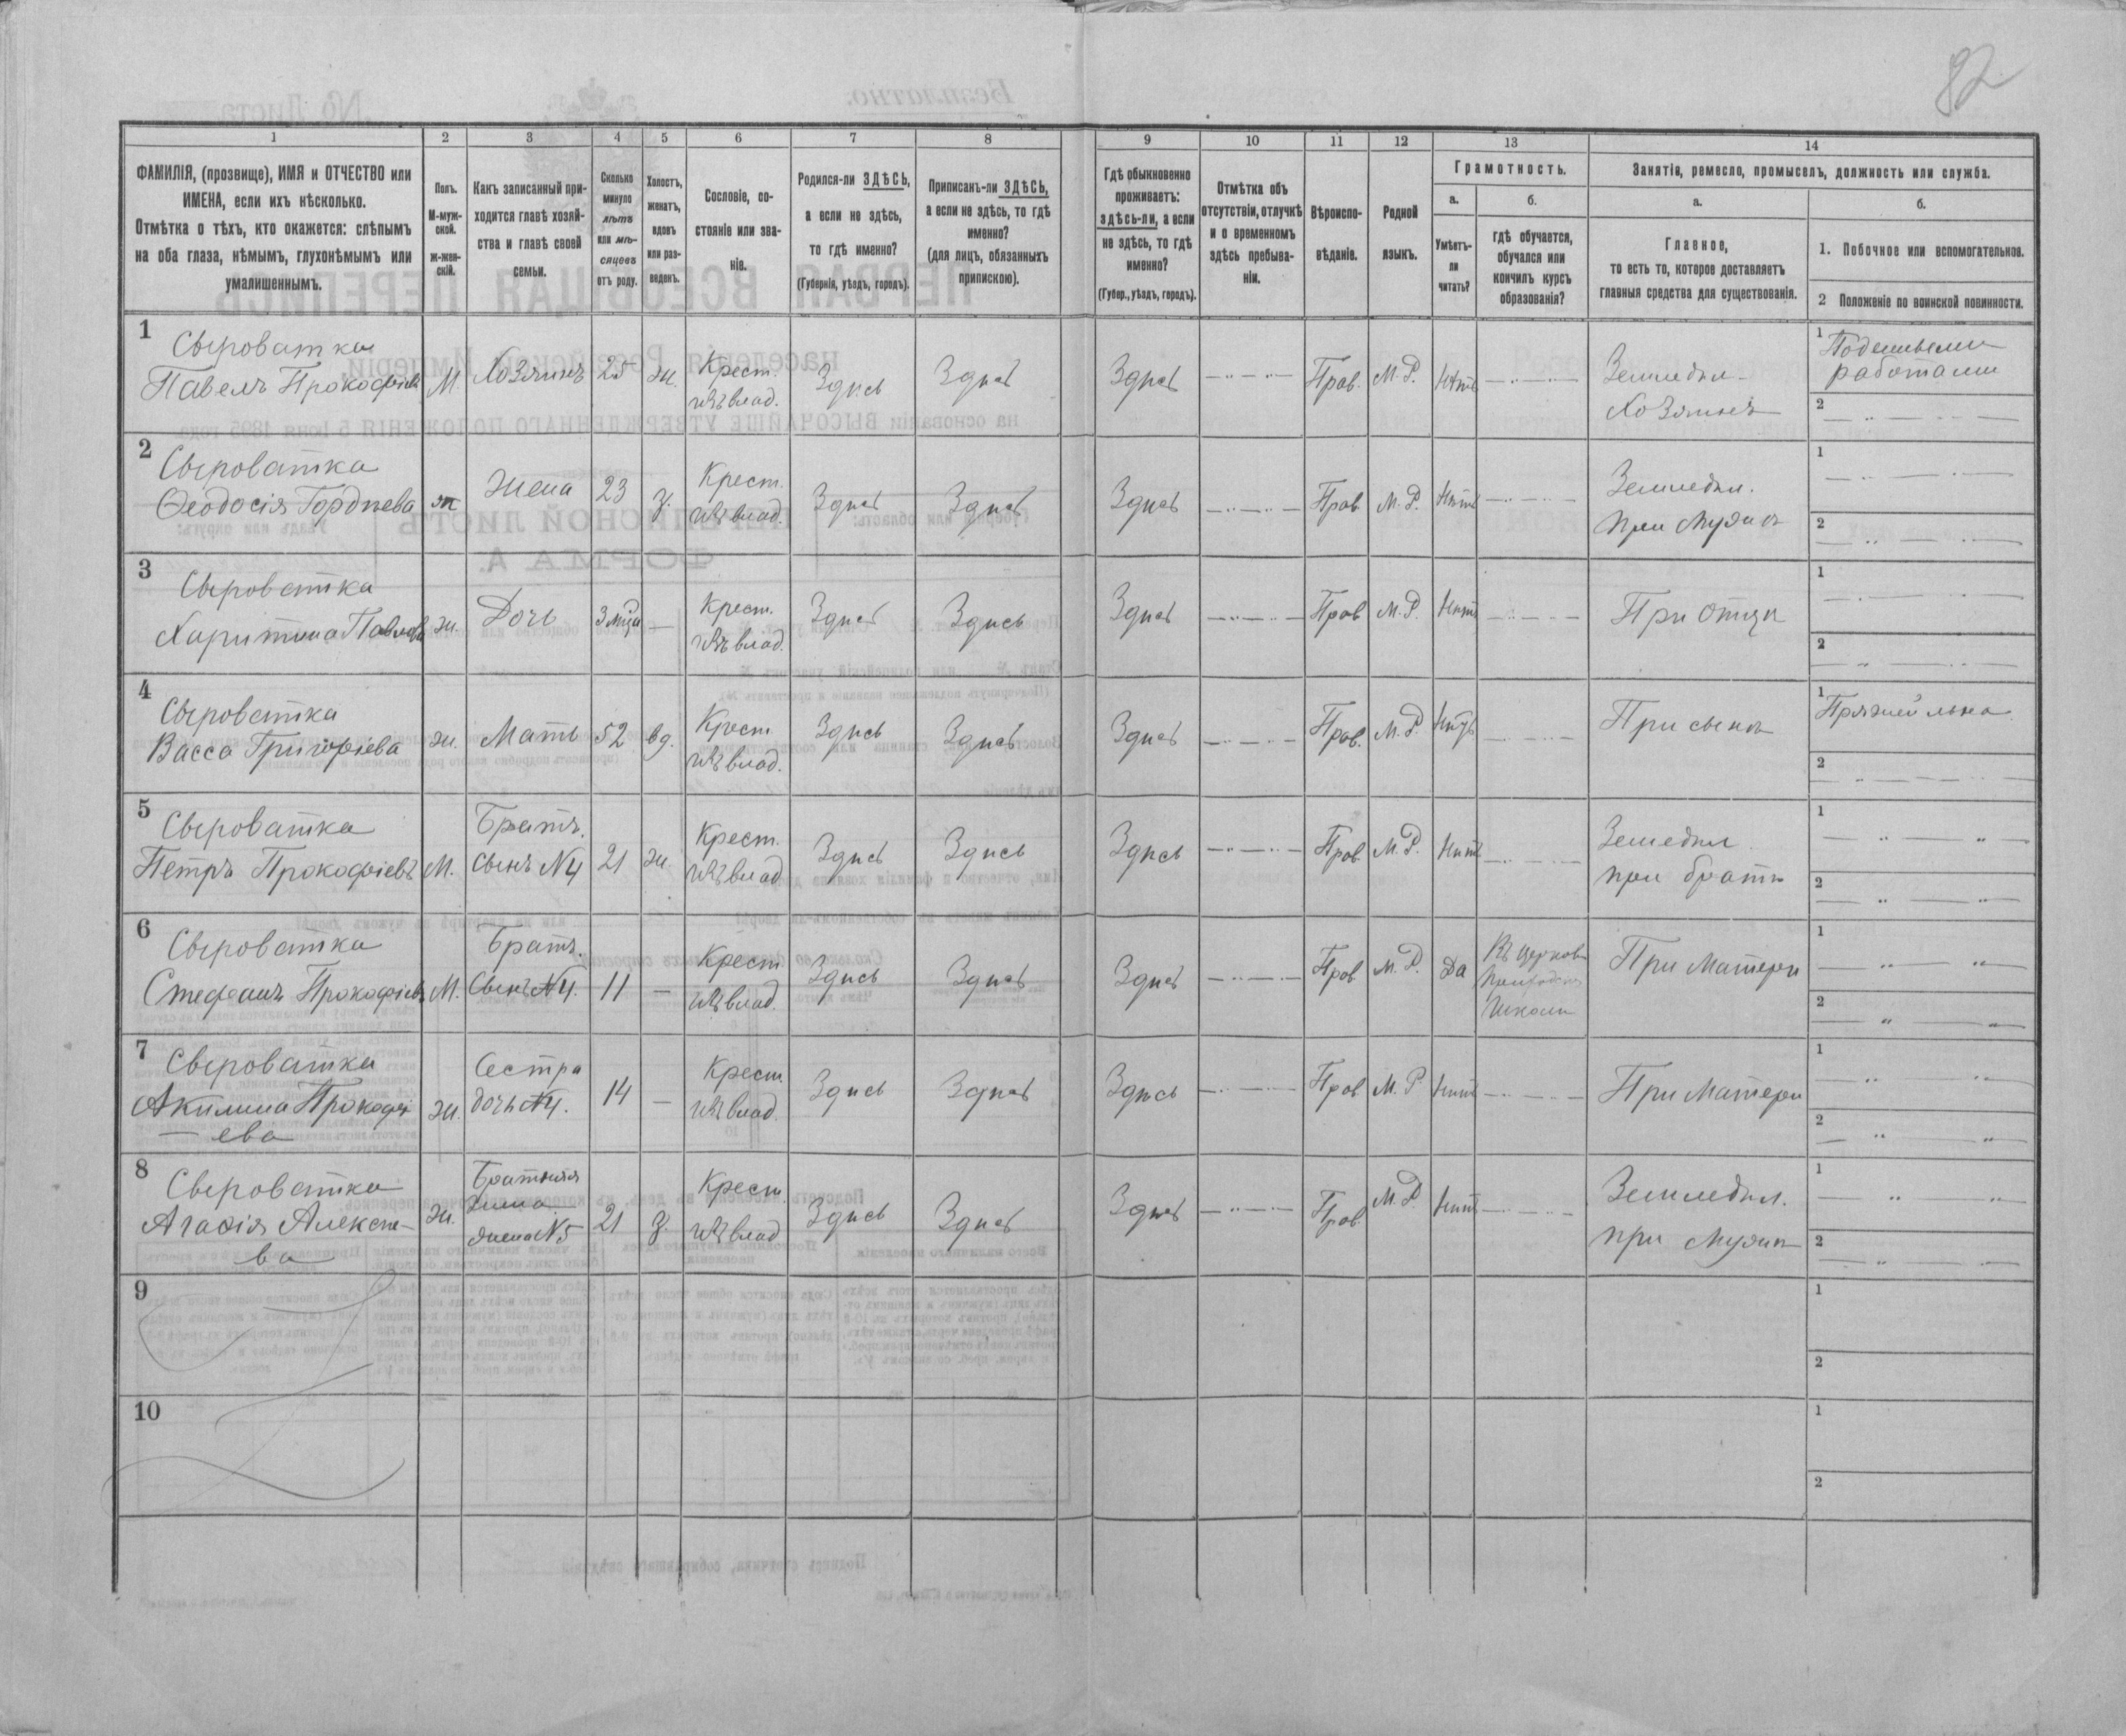 82
1 2 3 4 5 6 7 8 9 10 11 12 13 14
ФАМИЛІЯ, (прозвище), ИМЯ и ОТЧЕСТВО или
ИМЕНА, если ихъ нѣсколько.
Отмѣтка о тѣхъ, кто окажется: слѣпымъ
на оба глаза, нѣмымъ, глухонѣмымъ или
умалишеннымъ.
Полъ.
М-муж-
ской.
ж-жен-
скій.
Какъ записанный при-
ходится главѣ хозяй-
ства и главѣ своей
семьи.
Сколько
минуло
лѣтъ
или мѣ-
сяцевъ
отъ роду.
Холостъ,
женатъ,
вдовъ
или раз-
веденъ.
Сословіе, со-
стояніе или зва-
ніе.
Родился-ли ЗДѢСЬ,
а если не здѣсь,
то гдѣ именно?
(Губернія, уѣздъ, городъ).
Приписанъ-ли ЗДѢСЬ,
а если не здѣсь, то гдѣ
именно?
(для лицъ, обязанныхъ
припискою).
Гдѣ обыкновенно
проживаетъ:
здѣсь-ли, а если
не здѣсь, то гдѣ
именно?
(Губер., уѣздъ, городъ).
Отмѣтка объ
отсутствіи, отлучкѣ
и о временномъ
здѣсь пребыва-
ніи.
Вѣроиспо-
вѣданіе.
Родной
языкъ.
Грамотность.
а.
Умѣетъ-
ли
читать?
б.
гдѣ обучается,
обучался или
кончилъ курсъ
образованія?
Занятія, ремесло, промыселъ, должность или служба.
а.
Главное,
то есть то, которое доставляетъ
главныя средства для существованія.
б.
1. Побочное или вспомогательное.
2 Положеніе по воинской повинности.
1
Сыроватка
Павелъ Прокофіевъ
М.
Хозяинъ
25
ж.
Крест.
изъ влад.
Здѣсь
Здѣсь
Здѣсь
Прав.
М. Р.
Нѣтъ
Земледѣл.
Хозяинъ
1 Поденными
работами
2
2
Сыроватка
Ѳеодосія Гордѣева
ж
Жена
23
з.
Крест.
изъ влад.
Здѣсь
Здѣсь
Здѣсь
Прав
М. Р.
Нѣтъ
Земледѣл.
при мужѣ
1
2
3
Сыроватка
Харитина Павлова
ж.
Дочь
3 мѣц
Крест.
изъ влад.
Здѣсь
Здѣсь
Здѣсь
Прав
М. Р.
Нѣтъ
При отцѣ
1
2
4
Сыроватка
Васса Григоріева
ж.
Мать
52
вд.
Крест
изъ влад.
Здѣсь
Здѣсь
Здѣсь
Прав.
М. Р.
Нѣтъ
При сынѣ
1 Пряжей льна
2
5
Сыроватка
Петръ Прокофіевъ
М.
Братъ.
сынъ N4
21
ж.
Крест.
изъ влад
Здѣсь
Здѣсь
Здѣсь
Прав
М. Р.
Нѣтъ
Земледѣл
при братѣ
1
2
6
Сыроватка
Стефанъ Прокофіевъ
М.
Братъ.
Сынъ N4.
11
Крест
изъ влад.
Здѣсь
Здѣсь
Здѣсь
Прав
М. Р.
Да
Въ церковн
приходск
школѣ
При Матери
1
2
7
Сыроватка
Акилина Прокофі
ева
ж.
Сестра
дочь N4.
14
Крест.
изъ влад.
Здѣсь
Здѣсь
Здѣсь
Прав
М. Р
Нѣтъ
При Матери
1
2
8
Сыроватка
Агафія Алексѣе-
ва
ж.
Братняя
жена
жена N5
21
з.
Крест
изъ влад
Здѣсь
Здѣсь
Здѣсь
Прав
М. Р
Нѣтъ
Земледѣл.
при мужѣ
1
2
9
1
2
10
1
2